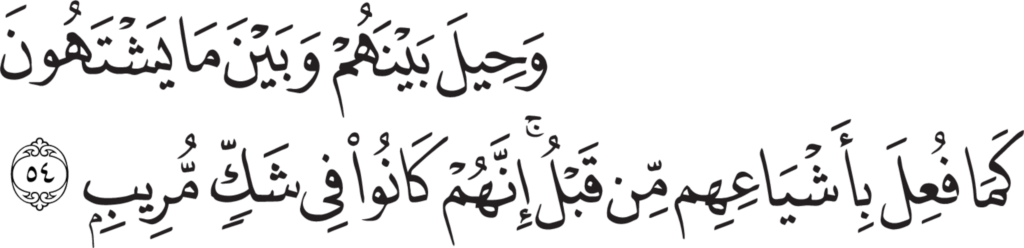 وَحِيلَ بَيْنَهُمْ وَبَيْنَ مَا يَشْتَهُونَ
كَمَا فُعِلَ بِأَشْيَاعِهِم مِّن قَبْلُ ۚ إِنَّهُمْ كَانُوا۟ فِى شَكٍّ مُّرِيبٍۭ ٥٤